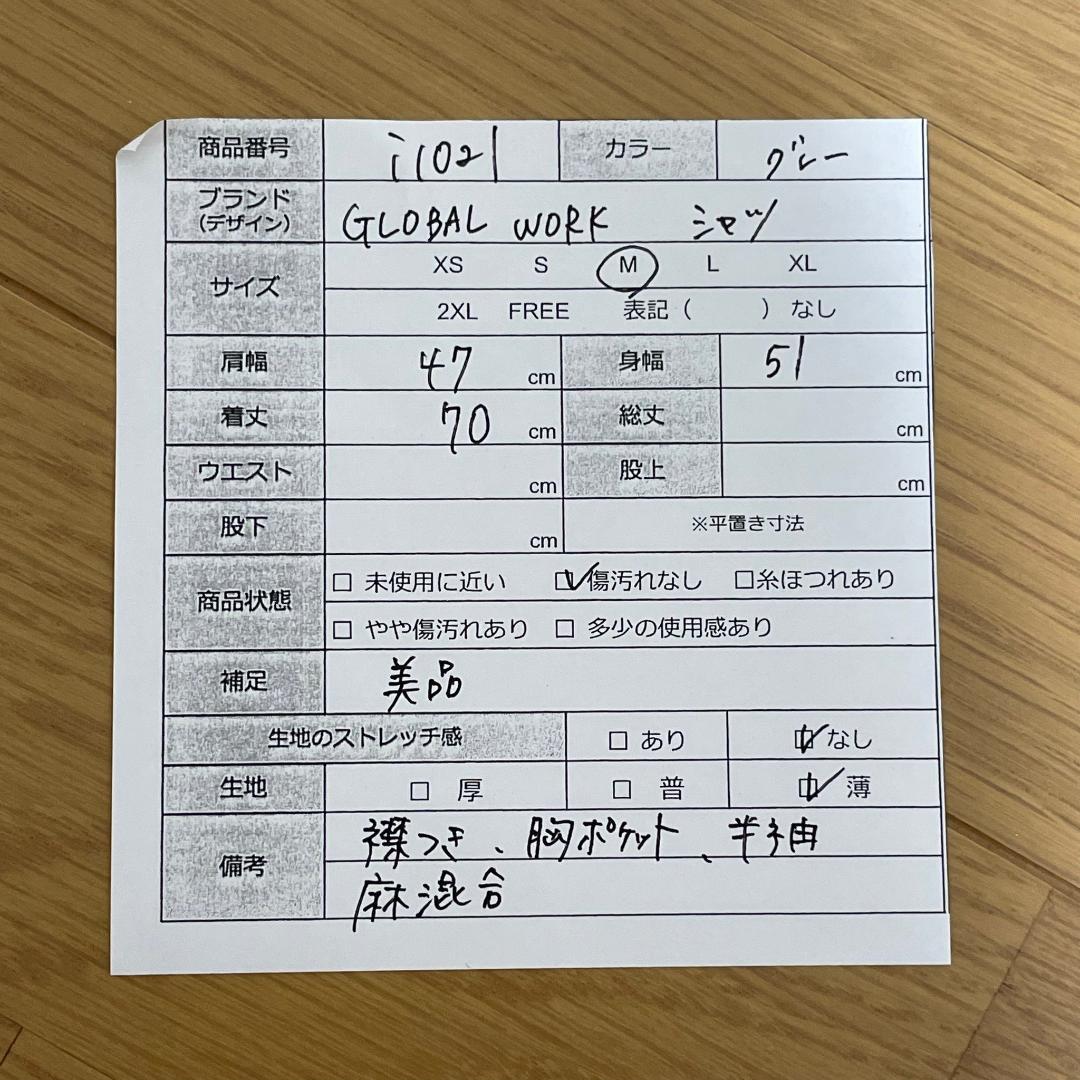 商品番号 i1021 カラー グレー
ブランド GLOBAL WORK シャツ
(デザイン)
サイズ XS S M L XL
2XL FREE 表記( ) なし
肩幅 47 cm 身幅 51 cm
着丈 70 cm 総丈 cm
ウエスト cm 股上 cm
股下 cm ※平置き寸法
商品状態 □ 未使用に近い ☑傷汚れなし □糸ほつれあり
□ やや傷汚れあり □ 多少の使用感あり
補足 美品
生地のストレッチ感 □ あり ☑なし
生地 □ 厚 □ 普 ☑ 薄
備考 襟つき、胸ポケット、半袖
麻混合